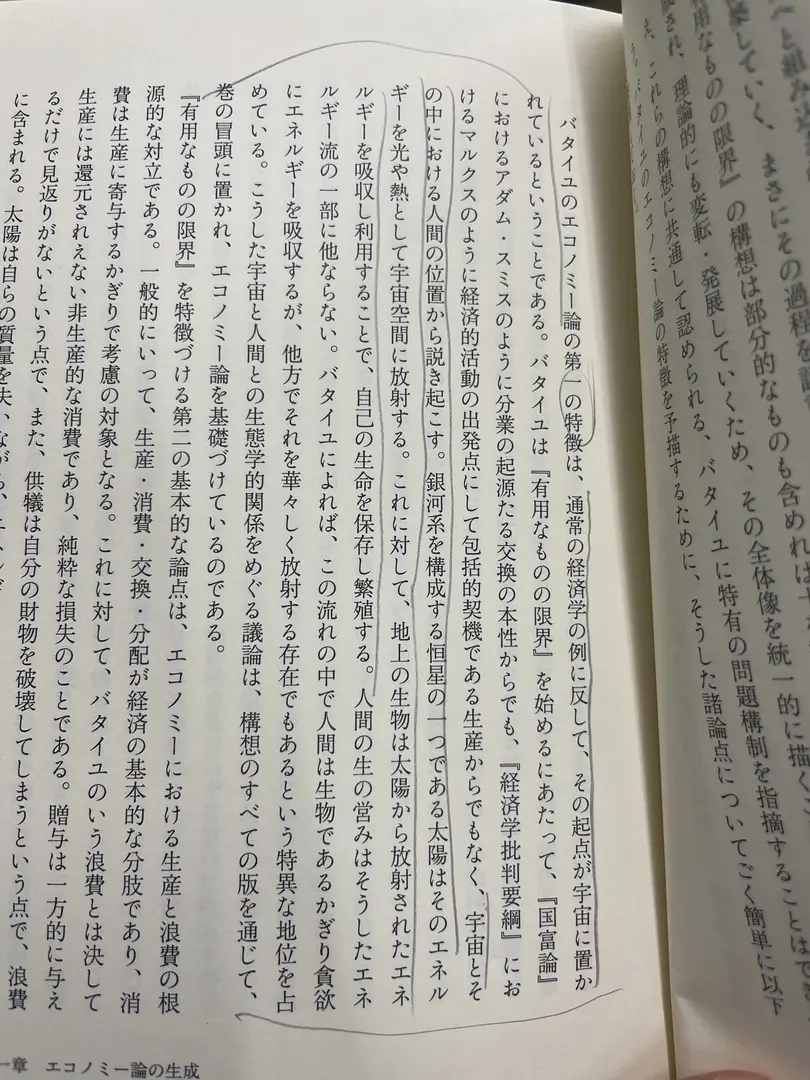 へと組み込
していく、まさにその過程を
用なものの限界』の構想は部分的なものも含めれば十
され、理論的にも変転・発展していくため、その全体像を統一的に描くこ
これらの構想に共通して認められる、バタイユに特有の問題構制を指摘することは
バタイユのエコノミー論の特徴を予描するために、そうした諸論点についてごく簡単に以下
バタイユのエコノミー論の第一の特徴は、通常の経済学の例に反して、その起点が宇宙に置か
れているということである。バタイユは『有用なものの限界』を始めるにあたって、『国富論』
におけるアダム・スミスのように分業の起源たる交換の本性からでも、『経済学批判要綱』にお
けるマルクスのように経済的活動の出発点にして包括的契機である生産からでもなく、宇宙とそ
の中における人間の位置から説き起こす。銀河系を構成する恒星の一つである太陽はそのエネル
ギーを光や熱として宇宙空間に放射する。これに対して、地上の生物は太陽から放射されたエネ
ルギーを吸収し利用することで、自己の生命を保存し繁殖する。人間の生の営みはそうしたエネ
ルギー流の一部に他ならない。バタイユによれば、この流れの中で人間は生物であるかぎり貪欲
にエネルギーを吸収するが、他方でそれを華々しく放射する存在でもあるという特異な地位を占
めている。こうした宇宙と人間との生態学的関係をめぐる議論は、構想のすべての版を通じて、
巻の冒頭に置かれ、エコノミー論を基礎づけているのである。
『有用なものの限界』を特徴づける第二の基本的な論点は、エコノミーにおける生産と浪費の根
源的な対立である。一般的にいって、生産・消費・交換・分配が経済の基本的な分肢であり、消
費は生産に寄与するかぎりで考慮の対象となる。これに対して、バタイユのいう浪費とは決して
生産には還元されえない非生産的な消費であり、純粋な損失のことである。贈与は一方的に与え
るだけで見返りがないという点で、また、供犠は自分の財物を破壊してしまうという点で、浪費
に含まれる。太陽は自らの質量を失いながら、エネルギ
一章 エコノミー論の生成